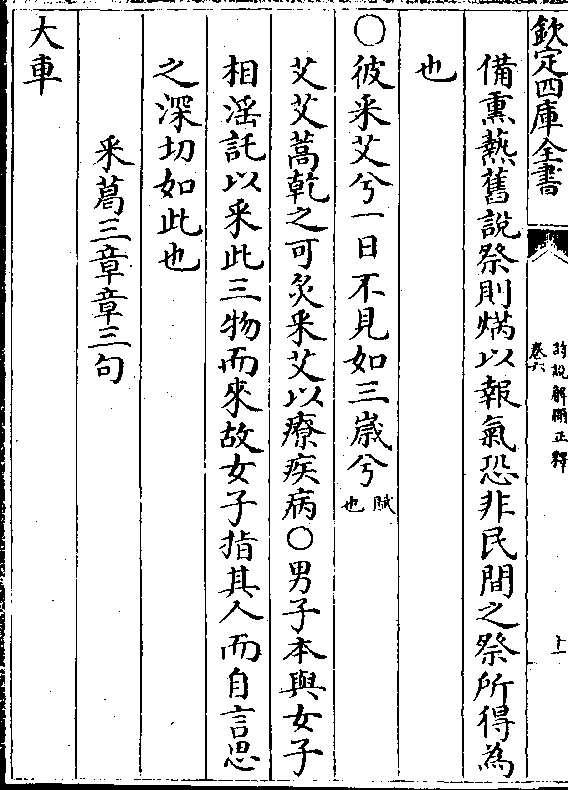 欽定四庫全書
詩說解頤正釋
卷六
十一
備熏爇舊說祭則焫以報氣恐非民間之祭所得為
也
○彼采艾兮一日不見如三歲兮賦也
艾艾蒿乾之可灸采艾以療疾病○男子本與女子
相淫託以采此三物而來故女子指其人而自言思
之深切如此也
采葛三章章三句
大車